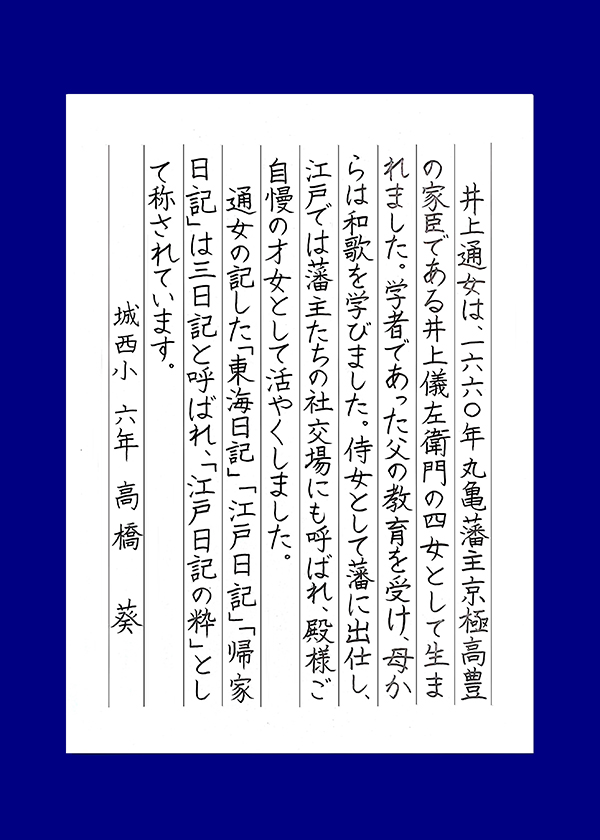 井上通女は、一六六〇年丸亀藩主京極高豊
の家臣である井上儀左衛門の四女として生ま
れました。学者であった父の教育を受け、母か
らは和歌を学びました。侍女として藩に出仕し、
江戸では藩主たちの社交場にも呼ばれ、殿様ご
自慢の才女として活やくしました。
通女の記した「東海日記」「江戸日記」「帰家
日記」は三日記と呼ばれ、「江戸日記の粋」とし
て称されています。
城西小 六年 高橋 葵